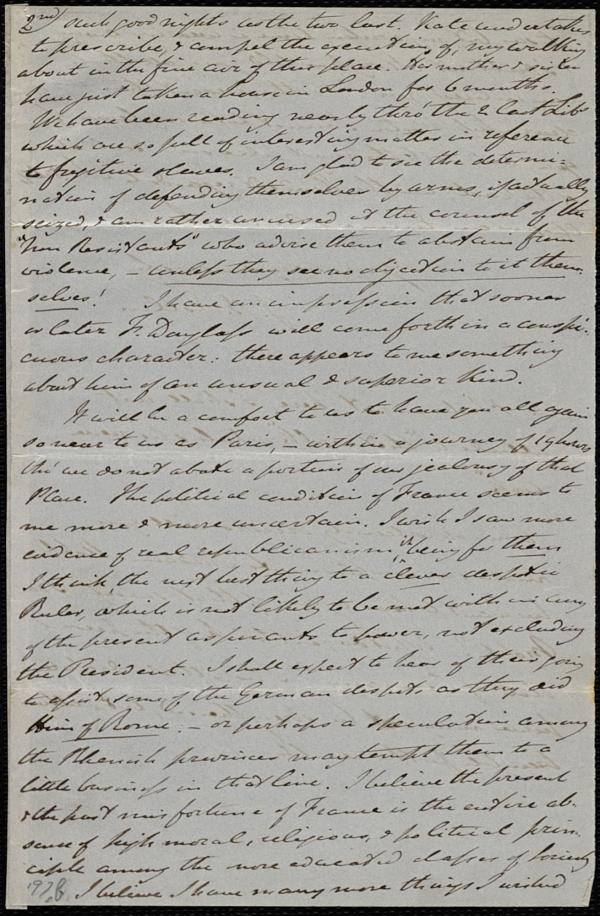 2nd such good nights as the two last. Kate undertakes
to prescribe, & compel the execution of, my walking
about in the fine air of this place. Her mother & sister
have just taken a house in London for 6 months.
We have been reading nearly thro' the 2 last Libs
which are so full of interesting matter in reference
to fugitive slaves. I am glad to see the determi-
nation of defending themselves by arms, if actually
seized, & am rather amused at the counsel of the
"Non Resistants" who advise them to abstain from
violence, – unless they see no objection to it them-
selves! I have an impression that sooner
or later F. Douglass will come forth in a conspi-
cuous character: there appears to me something
about him of an unusual & superior kind.
It will be a comfort to us to have you all again
so near to us as Paris, – within a journey of 19 hours
tho' we do not abate a portion of our jealousy of that
Place. The political condition of France seems to
me more & more uncertain. I wish I saw more
evidence of real republicanism being for them
I think, the next best thing to a clever despotic
Ruler, which is not likely to be met with in any
of the present aspirants to power, not excluding
the President. I shall expect to hear of their going
to assist some of the German despots as they did
Him of Rome. – or perhaps a speculation among
the Rhenish provinces may tempt them to a
little business in that line. I believe the present
& the past misfortune of France is the entire ab-
sence of high moral, religious, & political prin-
ciple among the more educated classes of Society
I believe I have many more things I wished